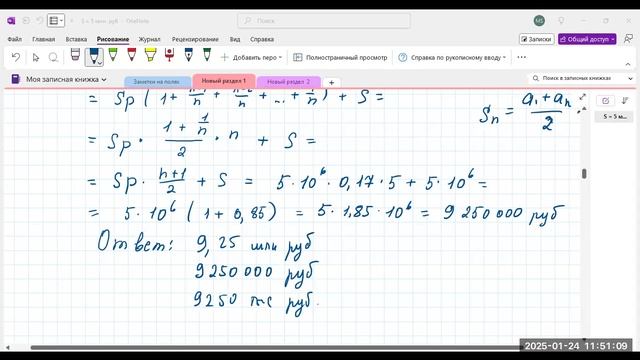 S = 5 млн. руб - OneNote
Поиск
MS
Файл Главная Вставка Рисование Журнал Рецензирование Вид Справка
Записки
Общий доступ
Добавить перо
Полноэкранный просмотр
Справка по рукописному вводу
Моя записная книжка
Заметки на полях
Новый раздел 1
Новый раздел 2
+
Поиск в записных книжках
S = 5 м...
= Sp (1 + (n-1)/n + (n-2)/n + ... + 1/n) + S =
Sn = (a1 + an)/2 ·
= Sp · (1 + 1/n)/2 · n + S =
= Sp · (n+1)/2 + S = 5·10⁶ · 0,17 · 5 + 5·10⁶ =
= 5·10⁶ (1 + 0,85) = 5·1,85·10⁶ = 9 250 000 руб
Ответ: 9,25 млн руб
9250 000 руб
9250 тыс руб.
2025-01-24 11:51:09